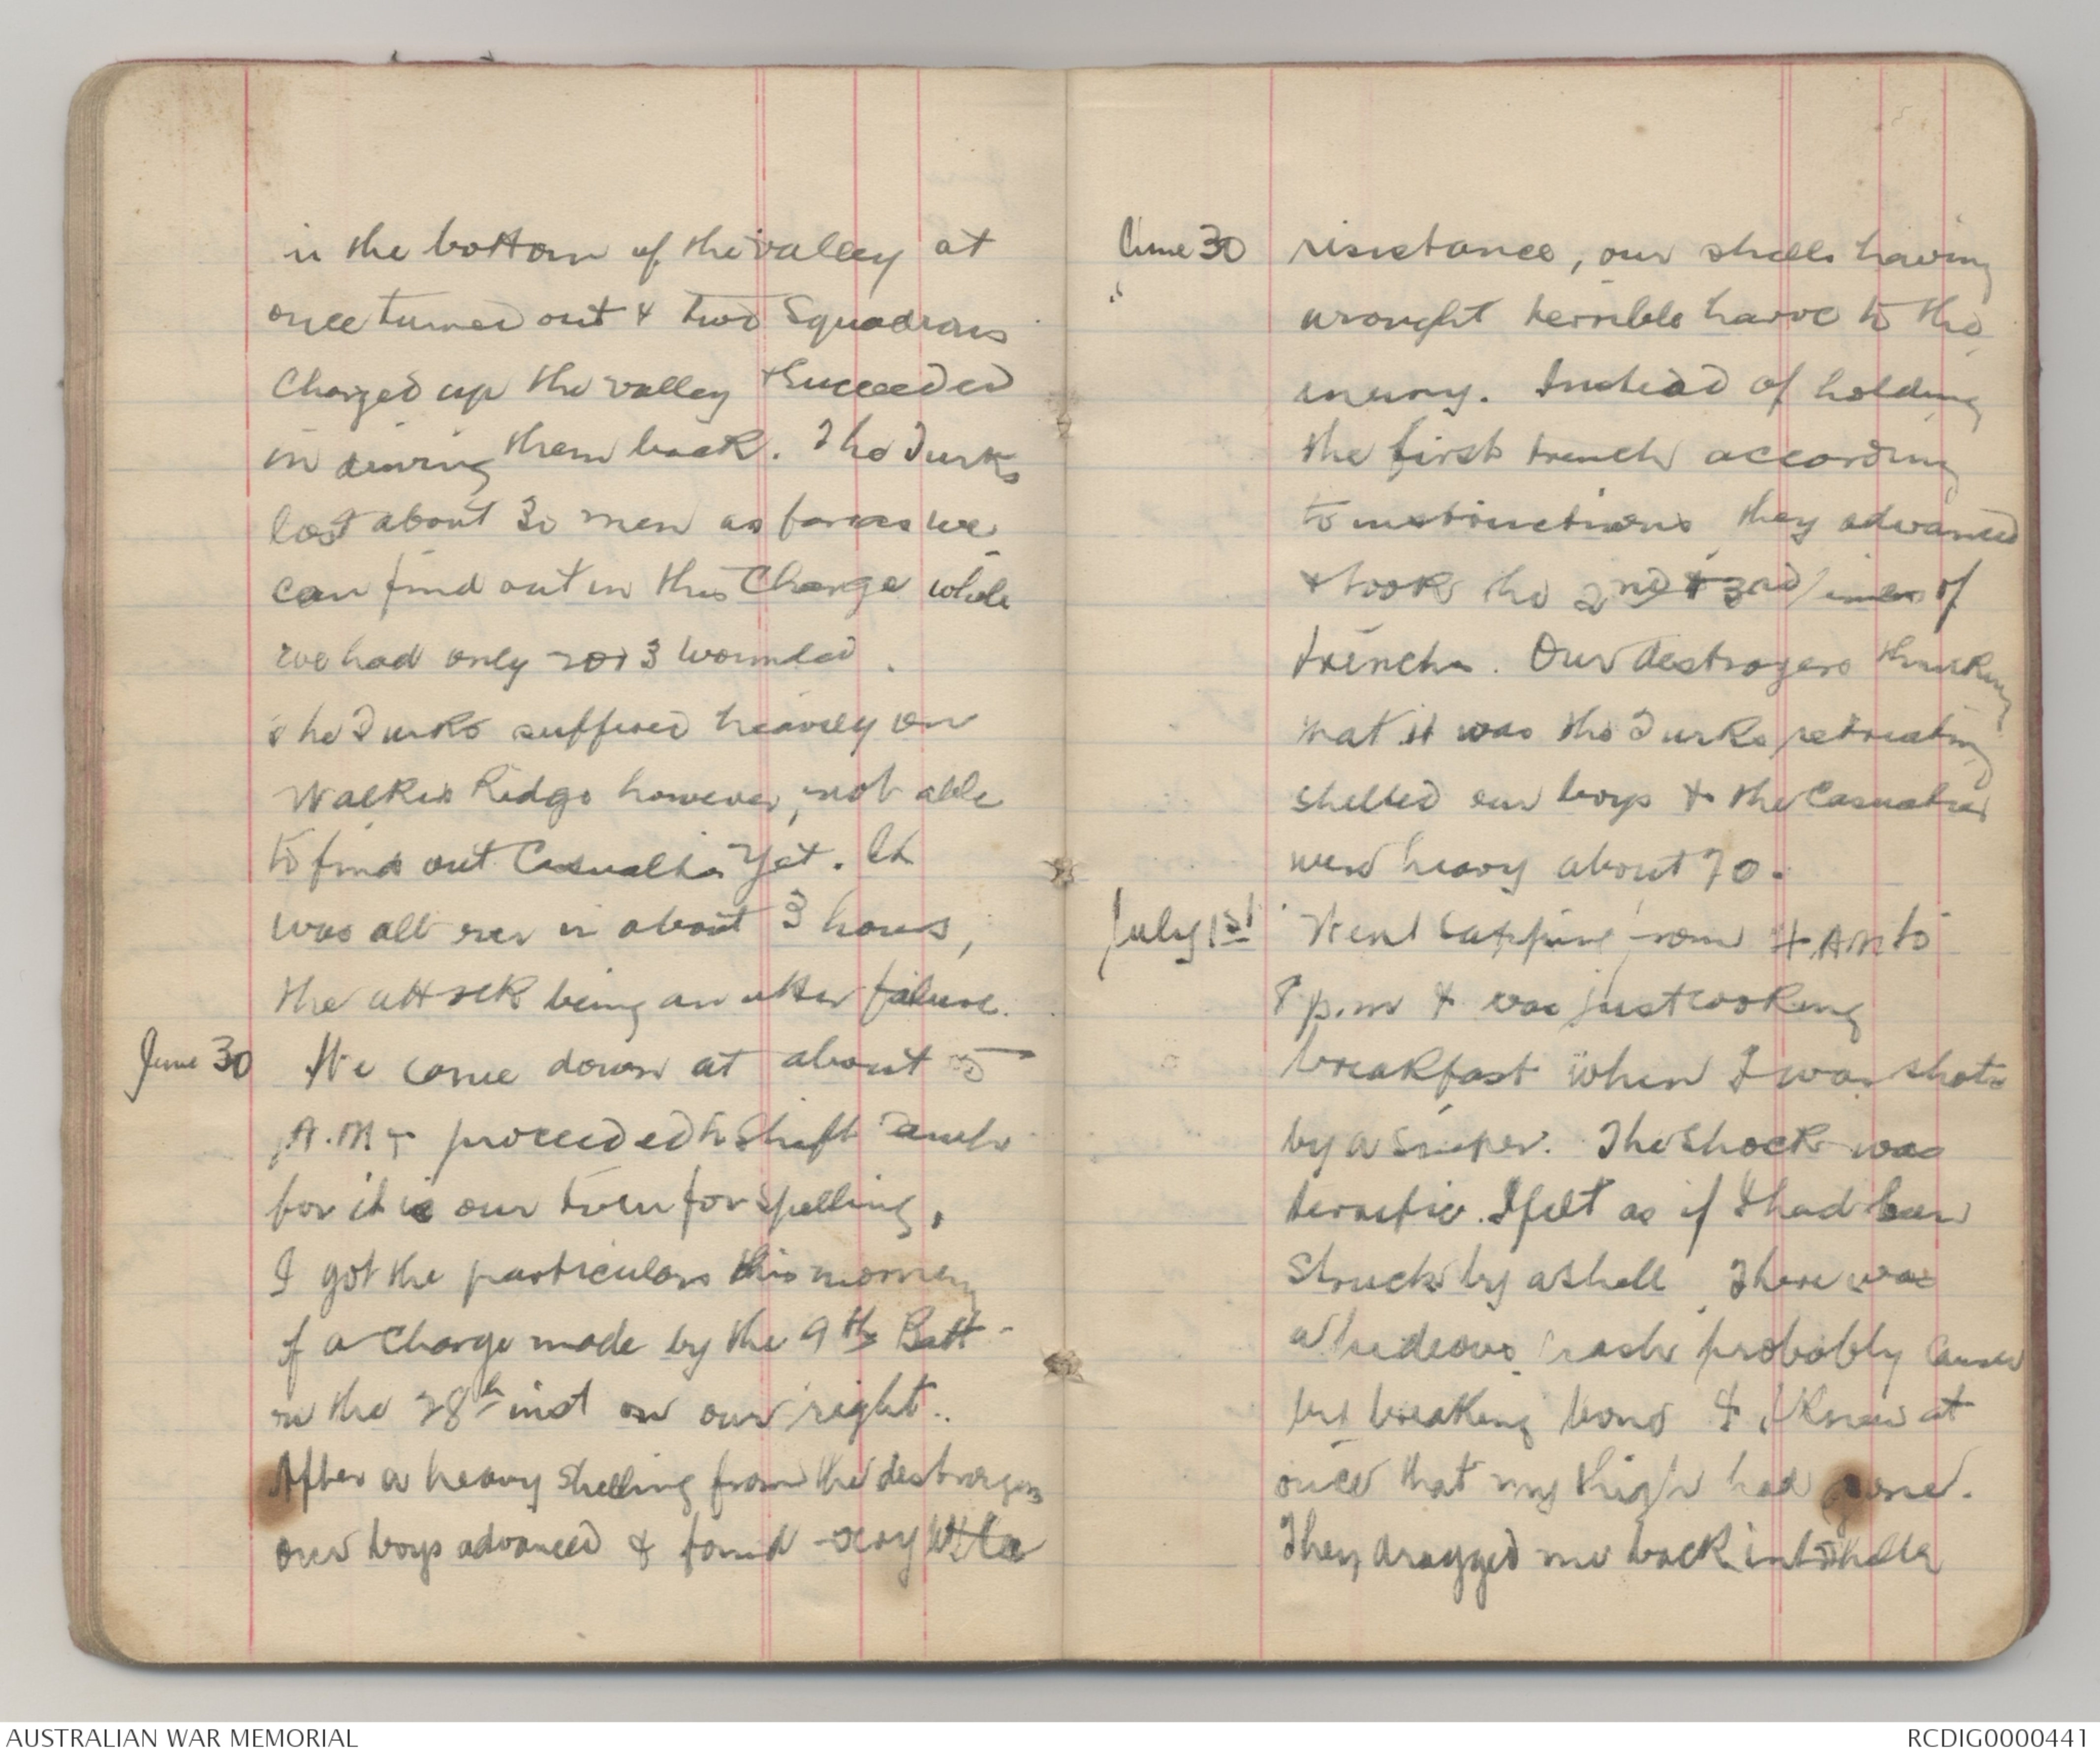 in the bottom of the valley at
once turned out & two Squadrons
Charged up the valley & Succeeded
in driving them back. The Turks
lost about 30 men as far as we
can find out in this Charge while
we had only 2 or 3 wounded.
The Turks suffered heavily on
Walkers Ridge however, not able
to find out Casualties yet. It
was all over in about 3 hours,
the attack being an utter failure.
June 30 We came down at about 5
A.M & proceeded to Shaft
for it is our turn for spelling.
I got the particulars this morning
of a Charge made by the 9th Batt
on the 28th inst on our right.
After a heavy shelling from the destroyers
our boys advanced & found very little
June 30 resistance, our shells having
" wrought terrible havoc to the
enemy. Instead of holding
the first trench according
to instructions they advanced
& took the 2nd & 3rd lines of
trenches. Our destroyers thinking
that it was the Turks retreating
shelled our boys & the Casualties
were heavy about 70.
July 1st Went Sapping from 4 AM to
8 p.m & was just cooking
breakfast when I was shot
by a Sniper. The Shock was
terrific. I felt as if I had been
Struck by a Shell. There was
a hideous crash probably caused
by breaking bone & I knew at
once that my thigh had gone.
They dragged me back into